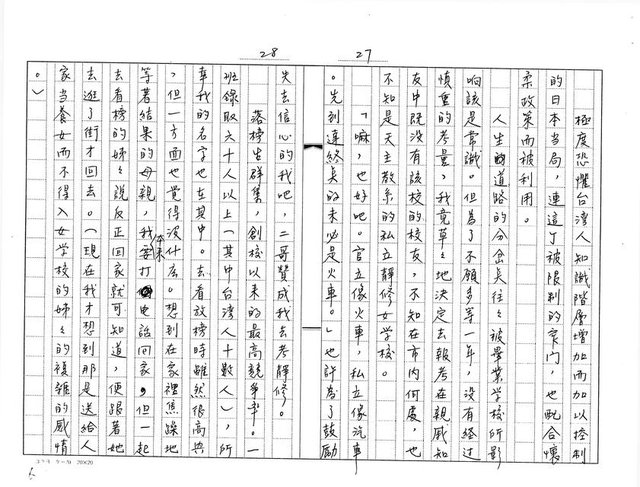 27
極度恐懼台灣人知識階層增加而加以控制
的日本当局，連這丁被限制的窄门，也配合懷
柔政策而被利用。
人生道路的分岔長往々被畢業学校所影
响該是常識。但為了不願多等一年，沒有经过
慎重的考量，我竟草々地決定去報考在親戚知
友中既没有該校的校友，不知在市内何處，也
不知是天主教系的私立靜修女学校。
「嘛，也好吧。官立像火車，私立像汽車
。先到達終点的未必是火車。」也許為了鼓励
28
失去信心的我吧，二哥贊成我去考靜修。
落榜生群集，創校以来的最高競争率。一
班錄取六十人以上（其中台灣人十數人），所
幸我的名字也在其中。去看放榜時雖然很高興
，但一方面也覺得没什么。想到在家裡焦躁地
等著結果的母親，我本來要打电話回家，但一起
去看榜的姊々說反正回家就可知道，便跟著她
去逛了街才回去。（現在我才想到那是送給人
家当養女而不得入女学校的姊々的複雜的感情
。）